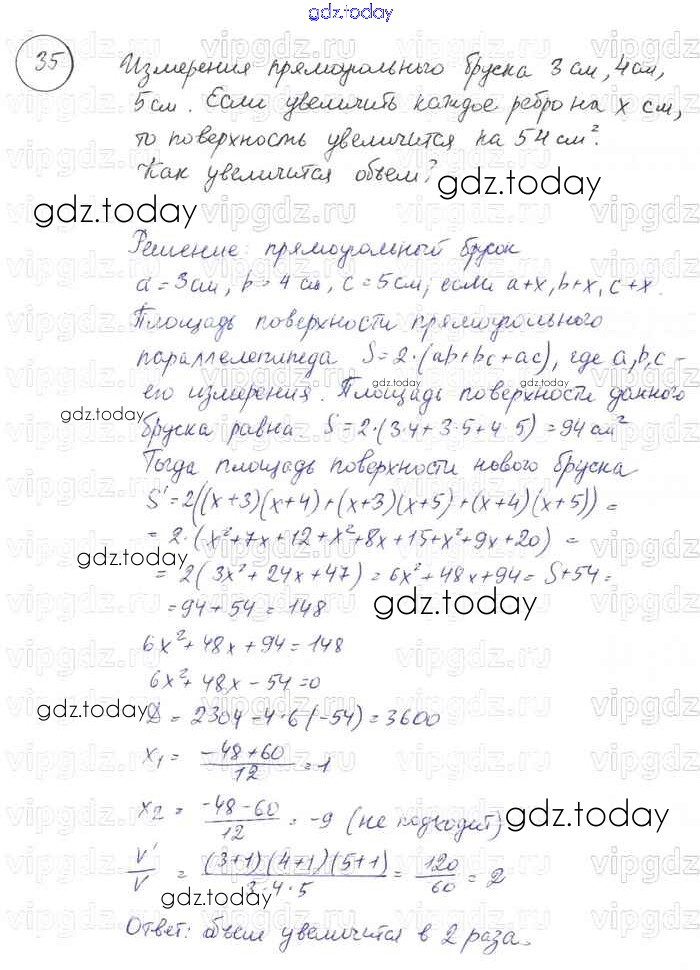 gdz.today
35 Измерения прямоугольного бруска 3 см, 4 см,
5 см. Если увеличить каждое ребро на x см,
то поверхность увеличится на 54 см².
Как увеличится объем?
gdz.today
gdz.today
Решение: прямоугольный брусок
a = 3 см, b = 4 см, c = 5 см, если a+x, b+x, c+x.
Площадь поверхности прямоугольного
параллелепипеда S = 2·(ab+bc+ac), где a, b, c –
gdz.today
его измерения. Площадь поверхности данного
gdz.today
бруска равна S = 2·(3·4+3·5+4·5) = 94 см²
Тогда площадь поверхности нового бруска
S' = 2((x+3)(x+4)+(x+3)(x+5)+(x+4)(x+5)) =
= 2·(x²+7x+12+x²+8x+15+x²+9x+20) =
gdz.today
= 2(3x²+24x+47) = 6x²+48x+94 = S+54 =
= 94+54 = 148
gdz.today
6x²+48x+94 = 148
6x²+48x-54 = 0
gdz.today
D = 2304-4·6(-54) = 3600
x₁ = (-48+60)/12 = 1
x₂ = (-48-60)/12 = -9 (не подходит)
gdz.today
V'/V = (3+1)(4+1)(5+1)/3·4·5 = 120/60 = 2
gdz.today
Ответ: объем увеличится в 2 раза.